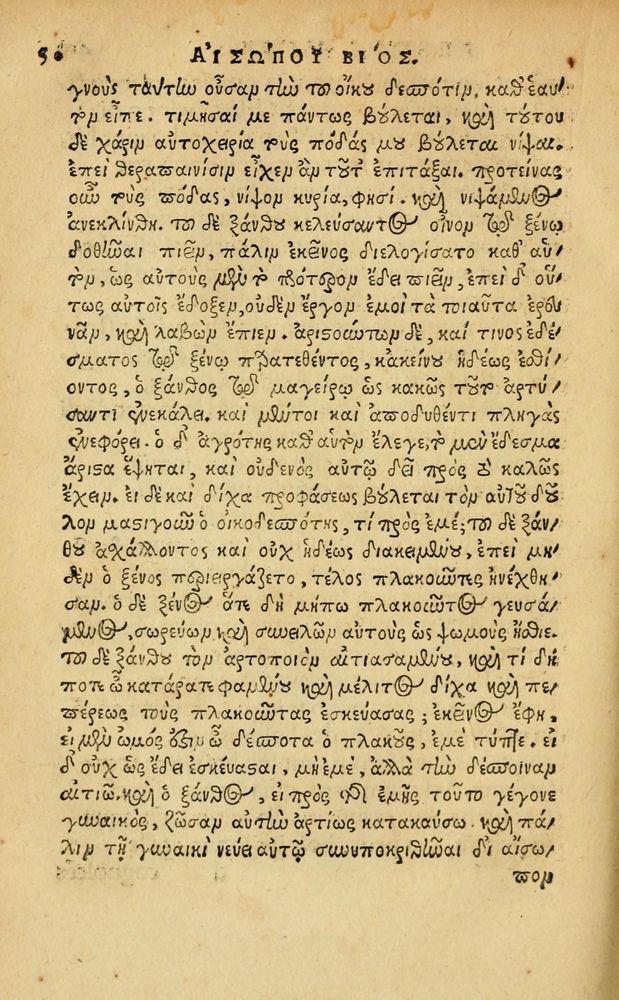 50 ΑἸΣΩΠΟΥ ΒΙΌΣ.
γνοὺς ταύτην οὖσαν τὴν τοῦ οἴκου δεσπότιν, καθ' ἑαυ-
τὸν εἶπε. τιμῆσαί με πάντως βούλεται, καὶ τούτου
δὲ χάριν αὐτοχειρία τοὺς πόδάς μου βούλεται νίψαι.
ἐπεὶ θεραπαινίσιν εἶχεν ἂν τοῦτ' ἐπιτάξαι. προτείνας
οὖν τοὺς πόδας, νίψον κυρία, φησί. καὶ νιψάμενος
ἀνεκλίνθη. τοῦ δὲ ξάνθου κελεύσαντος οἶνον τῷ ξένῳ
δοθῆναι πιεῖν, πάλιν ἐκεῖνος διελογίσατο καθ' αὑ-
τὸν, ὡς αὐτοὺς μὲν τὸ πρότερον ἔδει πιεῖν, ἐπεὶ δ' οὕ-
τως αὐτοῖς ἔδοξεν, οὐδὲν ἔργον ἐμοὶ τὰ τοιαῦτα ἐρευ-
νᾶν, καὶ λαβὼν ἔπιεν. ἀριστώντων δὲ, καί τινος ἐδέ-
σματος τῷ ξένῳ προτεθέντος, κἀκείνου ἡδέως ἐσθί-
οντος, ὁ ξάνθος τῷ μαγείρῳ ὡς κακῶς τοῦτ' ἀρτύ-
σαντι ἐνεκάλει. καὶ μέντοι καὶ ἀποδυθέντι πληγὰς
ἐνεφόρει. ὁ δ' ἀγρότης καθ' αὑτὸν ἔλεγε, τὸ μὲν ἔδεσμα
ἄριστα ἕψηται, καὶ οὐδενὸς αὐτῷ δεῖ πρὸς τὸ καλῶς
ἔχειν. εἰ δὲ καὶ δίχα προφάσεως βούλεται τὸν αὑτοῦ δοῦ-
λον μαστιγοῦν ὁ οἰκοδεσπότης, τί πρὸς ἐμέ; τοῦ δὲ ξάν-
θου ἀχάλλοντος καὶ οὐχ ἡδέως διακειμένου, ἐπεὶ μη-
δὲν ὁ ξένος περιειργάζετο, τέλος πλακοῦντες ἠνέχθη-
σαν. ὁ δὲ ξένος ἅτε δὴ μήπω πλακοῦντος γευσά-
μενος, σωρεύων, καὶ συνειλῶν αὐτοὺς ὡς ψωμοὺς ἤσθιε.
τοῦ δὲ ξάνθου τὸν ἀρτοποιὸν αἰτιασαμένου, καὶ τί δή
ποτε ὦ κατάρατε φαμένου καὶ μέλιτος δίχα καὶ πε-
πέρεως τοὺς πλακοῦντας ἐσκεύασας; ἐκεῖνος ἔφη,
εἰ μὲν ὠμός ἐστιν ὦ δέσποτα ὁ πλακοῦς, ἐμὲ τύπτε. εἰ
δ' οὐχ ὡς ἔδει ἐσκεύασται, μὴ ἐμέ, ἀλλὰ τὴν δέσποιναν
αἰτιῶ. καὶ ὁ ξάνθος, εἰ πρὸς τῆς ἐμῆς τοῦτο γέγονε
γυναικός, ζῶσαν αὐτὴν ἀρτίως κατακαύσω. καὶ πά-
λιν τῇ γυναικὶ νεύει αὐτῷ συνυποκριθῆναι δι' αἴσω-
πον